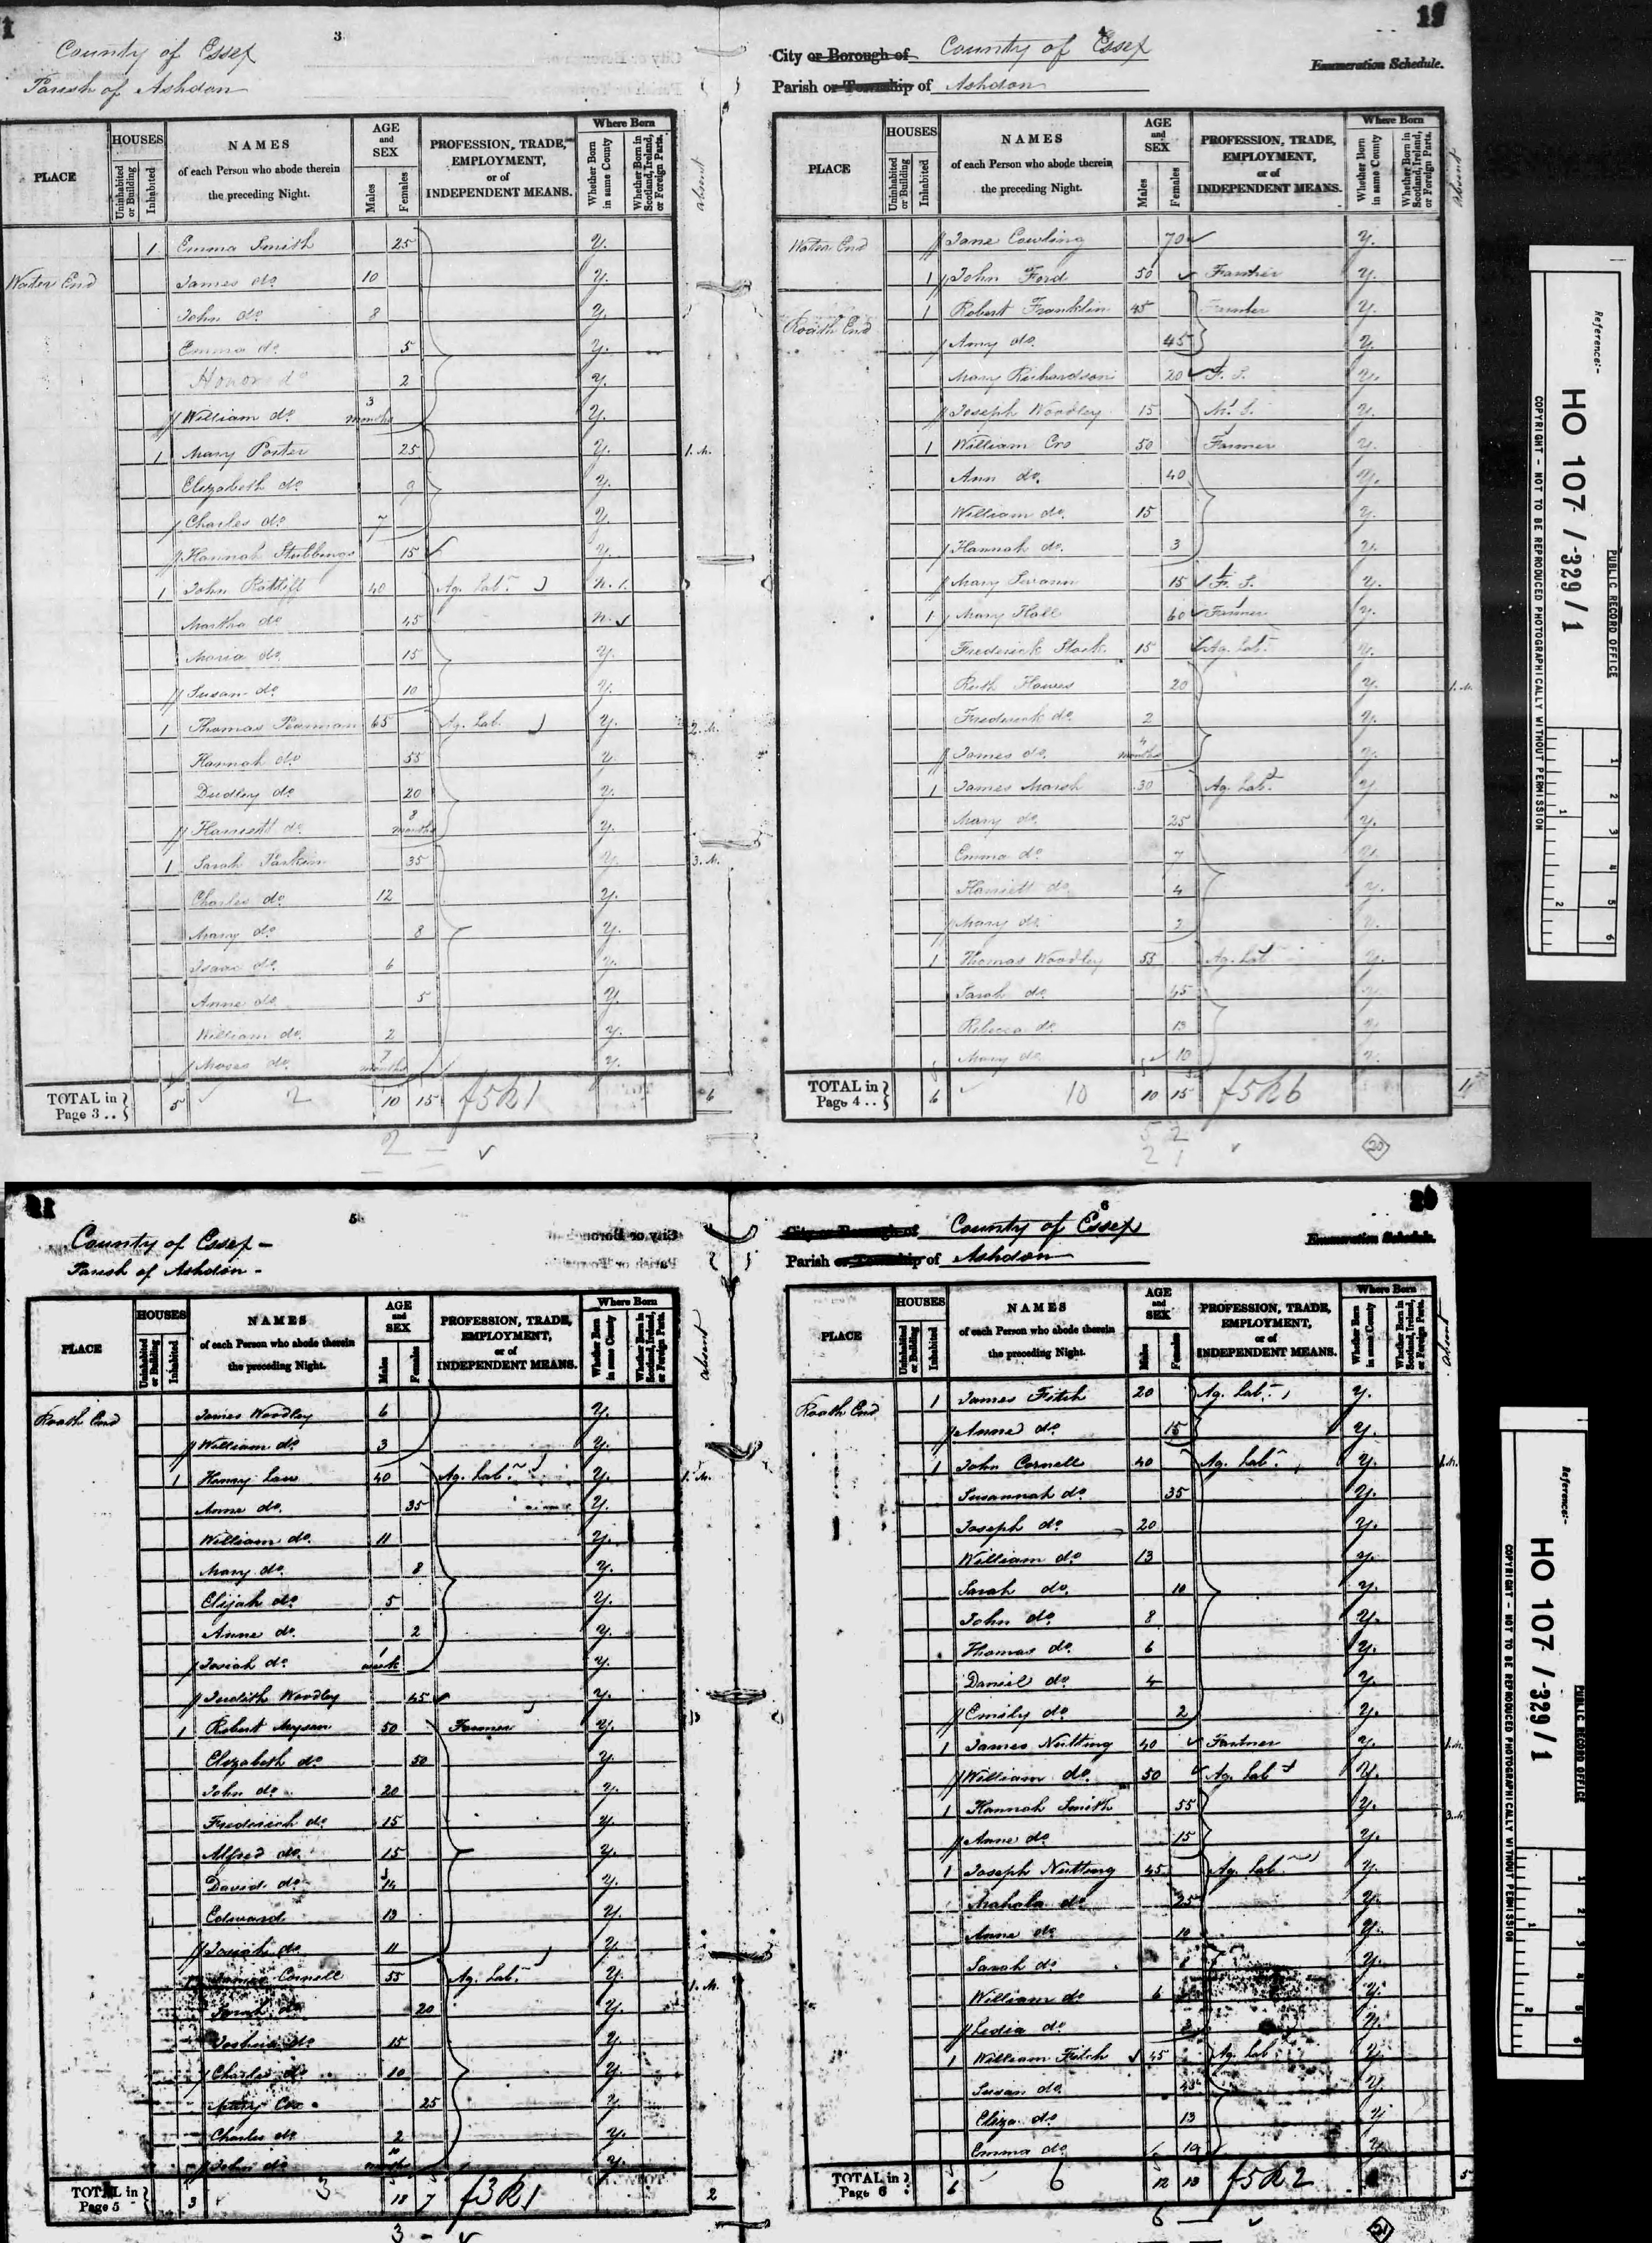 3
County of Essex
Parish of Ashdon
PLACE
HOUSES
Uninhabited or Building
Inhabited
NAMES
of each Person who abode therein
the preceding Night.
AGE
and
SEX
Males
Females
PROFESSION, TRADE,
EMPLOYMENT,
or of
INDEPENDENT MEANS.
Where Born
Whether Born in same County
Whether Born in Scotland, Ireland, or Foreign Parts.
absent
1 Emma Smith 25 Y.
Water End James do. 10 Y.
John do. 8 Y.
Emma do. 5 Y.
Honor do. 2 Y.
William do. 3 months Y.
1 Mary Porter 25 Y. 1. M.
Elizabeth do. 9 Y.
Charles do. 7 Y.
Hannah Stubbings 15 Y.
1 John Ratliff 40 Ag. Lab. N.
Martha do. 45 N.
Maria do. 15 Y.
Susan do. 10 Y.
1 Thomas Pearman 65 Ag. Lab. Y. 2. M.
Hannah do. 55 Y.
Dudley do. 20 Y.
Harriett do. 8 months Y.
1 Sarah Parkin 35 Y. 3. M.
Charles do. 12 Y.
Mary do. 8 Y.
Isaac do. 6 Y.
Anne do. 5 Y.
William do. 2 Y.
Moses do. 7 months Y.
TOTAL in Page 3 .. 5 2 10 15 f5h1 6
2
City or Borough of County of Essex
Enumeration Schedule.
Parish or Township of Ashdon
PLACE
HOUSES
Uninhabited or Building
Inhabited
NAMES
of each Person who abode therein
the preceding Night.
AGE
and
SEX
Males
Females
PROFESSION, TRADE,
EMPLOYMENT,
or of
INDEPENDENT MEANS.
Where Born
Whether Born in same County
Whether Born in Scotland, Ireland, or Foreign Parts.
absent
Water End Jane Cowling 70 Y.
1 John Ford 50 Farmer Y.
Roath End 1 Robert Franklin 45 Farmer Y.
Amy do. 45 Y.
Mary Richardson 20 F. S. Y.
Joseph Woodley 15 M. S. Y.
1 William Cro 50 Farmer Y.
Ann do. 40 Y.
William do. 15 Y.
Hannah do. 3 Y.
Mary 15 F. S. Y.
1 Mary Hall 60 Farmer Y.
Frederick Stock 15 Ag. Lab. Y.
Ruth Hawes 20 Y. 1. M.
Frederick do. 2 Y.
James do. 4 months Y.
1 James Marsh 30 Ag. Lab. Y.
Mary do. 25 Y.
Emma do. 7 Y.
Harriett do. 4 Y.
Mary do. 2 Y.
1 Thomas Woodley 53 Ag. Lab. Y.
Sarah do. 45 Y.
Rebecca do. 13 Y.
Mary do. 10 Y.
TOTAL in Page 4 .. 6 10 10 15 f5h6
5 2
2 1
20
Reference:-
HO 107 / 329 / 1
PUBLIC RECORD OFFICE
COPYRIGHT - NOT TO BE REPRODUCED PHOTOGRAPHICALLY WITHOUT PERMISSION
5
County of Essex -
Parish of Ashdon -
PLACE
HOUSES
Uninhabited or Building
Inhabited
NAMES
of each Person who abode therein
the preceding Night.
AGE
and
SEX
Males
Females
PROFESSION, TRADE,
EMPLOYMENT,
or of
INDEPENDENT MEANS.
Where Born
Whether Born in same County
Whether Born in Scotland, Ireland, or Foreign Parts.
absent
Roath End James Woodley 6 Y.
William do. 3 Y.
1 Henry Law 40 Ag. Lab. Y. 1. M.
Anne do. 35 Y.
William do. 11 Y.
Mary do. 8 Y.
Elijah do. 5 Y.
Anne do. 2 Y.
Josiah do. 1 week Y.
Judith Woodley 45 Y.
1 Robert Mysen 50 Farmer Y.
Elizabeth do. 50 Y.
John do. 20 Y.
Frederick do. 15 Y.
Alfred do. 15 Y.
David do. 14 Y.
Edward 13 Y.
Josiah do. 11 Y.
James Cornell 55 Ag. Lab. Y. 1. M.
Sarah do. 20 Y.
Joshua do. 15 Y.
Charles do. 10 Y.
Mary Cox 25 Y.
Charles do. 2 Y.
John do. 10 months Y.
TOTAL in Page 5 3 3 18 7 f3h1 2
3 -
City or Borough of County of Essex
Enumeration Schedule.
Parish or Township of Ashdon
PLACE
HOUSES
Uninhabited or Building
Inhabited
NAMES
of each Person who abode therein
the preceding Night.
AGE
and
SEX
Males
Females
PROFESSION, TRADE,
EMPLOYMENT,
or of
INDEPENDENT MEANS.
Where Born
Whether Born in same County
Whether Born in Scotland, Ireland, or Foreign Parts.
absent
Roath End 1 James Fitch 20 Ag. Lab. Y.
Anne do. 15 Y.
1 John Cornell 40 Ag. Lab. Y. 1. M.
Susannah do. 35 Y.
Joseph do. 20 Y.
William do. 13 Y.
Sarah do. 10 Y.
John do. 8 Y.
Thomas do. 6 Y.
Daniel do. 4 Y.
Emily do. 2 Y.
1 James Nutting 40 Farmer Y. 1. M.
William do. 50 Ag. Lab. Y.
1 Hannah Smith 55 Y. 3. M.
Anne do. 15 Y.
1 Joseph Nutting 45 Ag. Lab. Y.
Mahala do. 25 Y.
Anne do. 10 Y.
Sarah do. 8 Y.
William do. 6 Y.
Ledia do. Y.
1 William Fitch 45 Ag. Lab. Y.
Susan do. 45 Y.
Eliza do. 13 Y.
Emma do. 10 Y.
TOTAL in Page 6 6 6 12 13 f5h2 5
6 -
21
Reference:-
HO 107 / 329 / 1
PUBLIC RECORD OFFICE
COPYRIGHT - NOT TO BE REPRODUCED PHOTOGRAPHICALLY WITHOUT PERMISSION